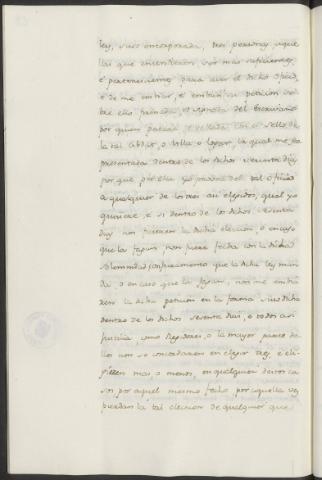 ley, suso encorporada, tres personas, aque
llas que entendieren ser mas suficientes,
e pertenecientes para aver el dicho oficio,
e de me embiar, e embien su peticion so
bre ello firmada, e signada del Escrivano
por quien pasare, e sellada con el sello de
la tal cibdat, o villa o logar, la qual me sea
presentada dentro de los dichos sesenta dias
por que por ella yo provea del tal oficio
a qualquier de los tres asi elegidos, qual yo
quisiere, e si dentro de los dichos sesenta
dias non fisieren la dicha eleccion, o en caso
que la fagan, non fuere fecha con la dicha
solemnidad juramento que la dicha ley man
da, o en caso que la fagan, non me embia
ren la dicha peticion en la forma suso dicha
dentro de los dichos sesenta dias, e todos asi
justicia como Regidores, o la mayor parte de
los non se concordaren en elegir tres, e eli
gieren mas o menos, en qualquier destos ca
sos por aquel mesmo fecho por aquella vez
pierdan la tal eleccion de qualquier que